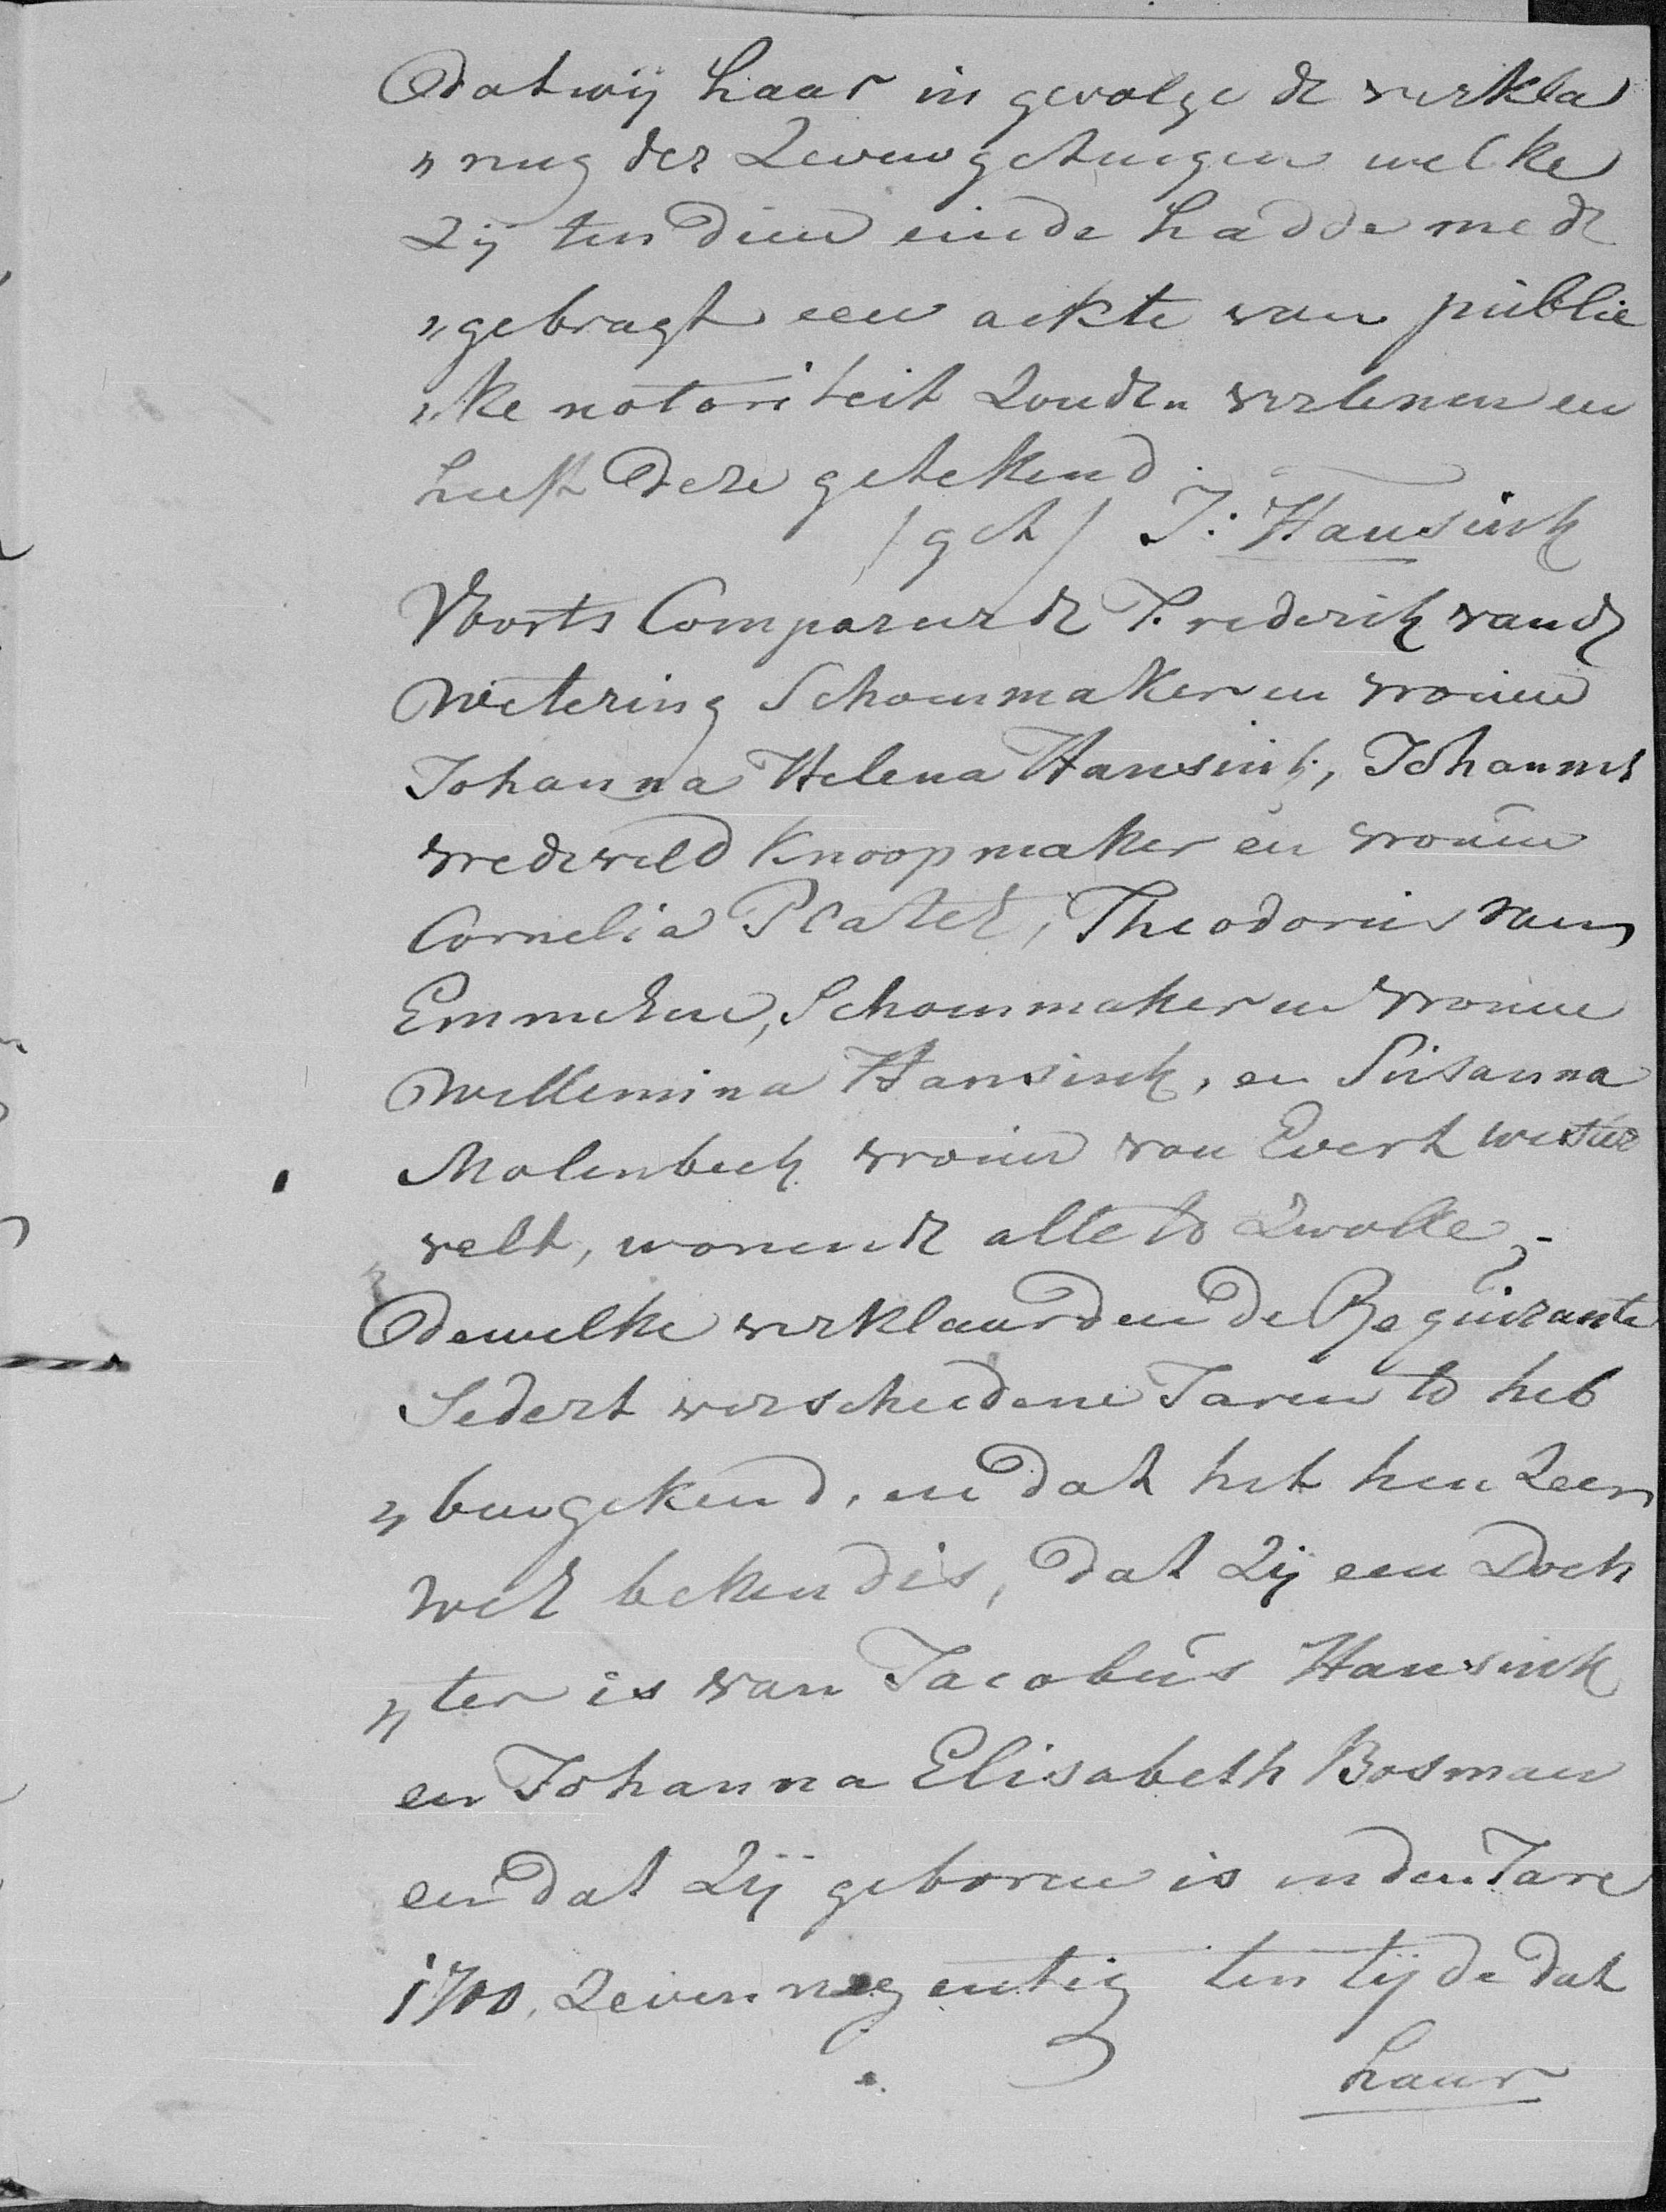 Dat wij haar in gevolge de verkla
„ring der Zeven getuigen welke
Zij ten dien einde hadde mede
„gebragt een ackte van publie
„ke notoriteit Zouden verlenen en
heeft deze getekend.
/get/ J: Hansink
Voorts Compareerde Frederik vande
Wetering Schoenmaker en vrouw
Johanna Helena Hansink, Johannes
vredeveld Knoopmaker en vrouw
Cornelia Platel, Theodorus van
Emmelen, Schoenmaker en vrouw
Willemina Hansink, en Susanna
Molenbeek vrouw van Evert wester
velt, wonende alle to Zwolle,-
Dewelke verklaarden de Requirante
Sedert verscheidene Jaren to heb
„ben gekend, en dat het hen Zeer
wel bekend is, dat Zij een Doch
„ter is van Jacobus Hansink
en Johanna Elisabeth Bosman
en dat Zij geboren is in den Jare
1700. Zeven negentig ten tijde dat
haar